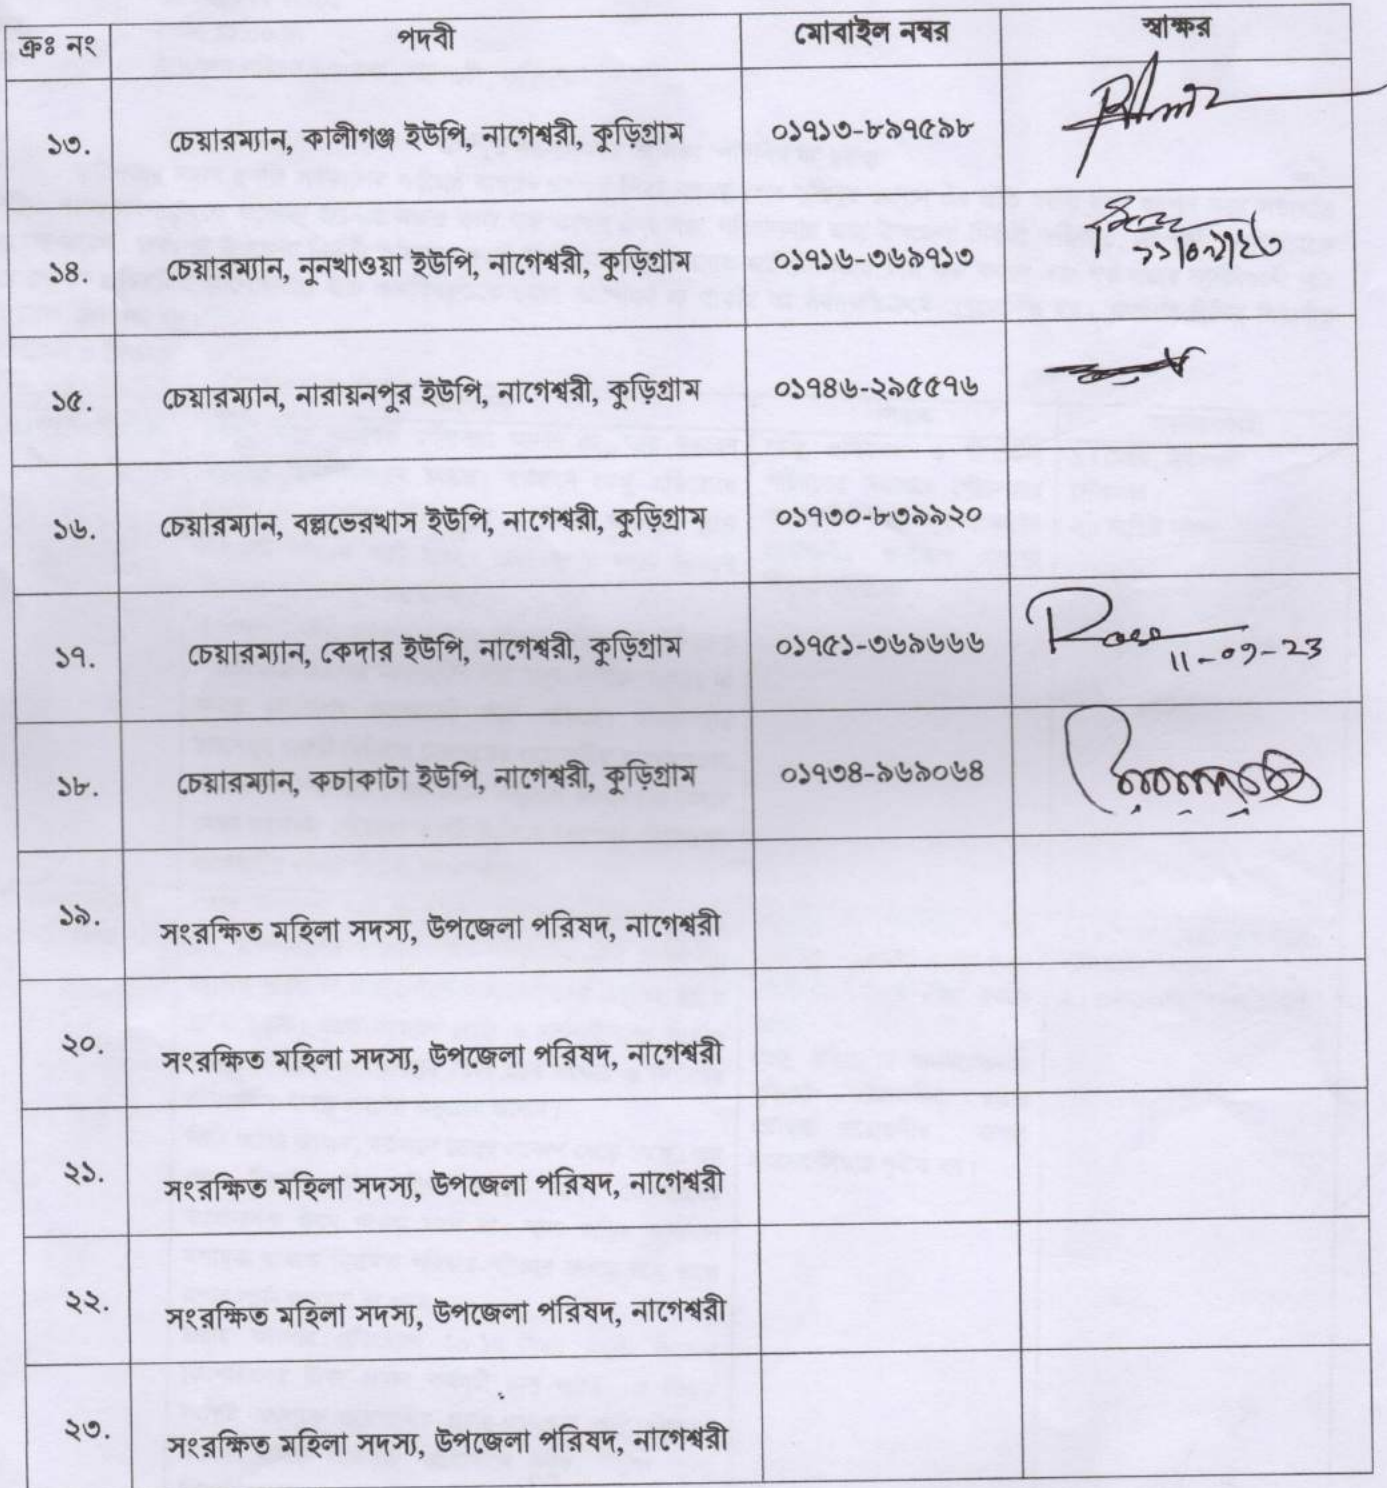 ক্রঃ নং পদবী মোবাইল নম্বর স্বাক্ষর
১৩. চেয়ারম্যান, কালীগঞ্জ ইউপি, নাগেশ্বরী, কুড়িগ্রাম ০১৭১৩-৮৯৭৫৯৮
১৪. চেয়ারম্যান, নুনখাওয়া ইউপি, নাগেশ্বরী, কুড়িগ্রাম ০১৭১৬-৩৬৯৭১৩
১৫. চেয়ারম্যান, নারায়নপুর ইউপি, নাগেশ্বরী, কুড়িগ্রাম ০১৭৪৬-২৯৫৫৭৬
১৬. চেয়ারম্যান, বল্লভেরখাস ইউপি, নাগেশ্বরী, কুড়িগ্রাম ০১৭৩০-৮৩৯৯২০
১৭. চেয়ারম্যান, কেদার ইউপি, নাগেশ্বরী, কুড়িগ্রাম ০১৭৫১-৩৬৯৬৬৬ 11-09-23
১৮. চেয়ারম্যান, কচাকাটা ইউপি, নাগেশ্বরী, কুড়িগ্রাম ০১৭৩৪-৯৬৯০৬৪
১৯. সংরক্ষিত মহিলা সদস্য, উপজেলা পরিষদ, নাগেশ্বরী
২০. সংরক্ষিত মহিলা সদস্য, উপজেলা পরিষদ, নাগেশ্বরী
২১. সংরক্ষিত মহিলা সদস্য, উপজেলা পরিষদ, নাগেশ্বরী
২২. সংরক্ষিত মহিলা সদস্য, উপজেলা পরিষদ, নাগেশ্বরী
২৩. সংরক্ষিত মহিলা সদস্য, উপজেলা পরিষদ, নাগেশ্বরী